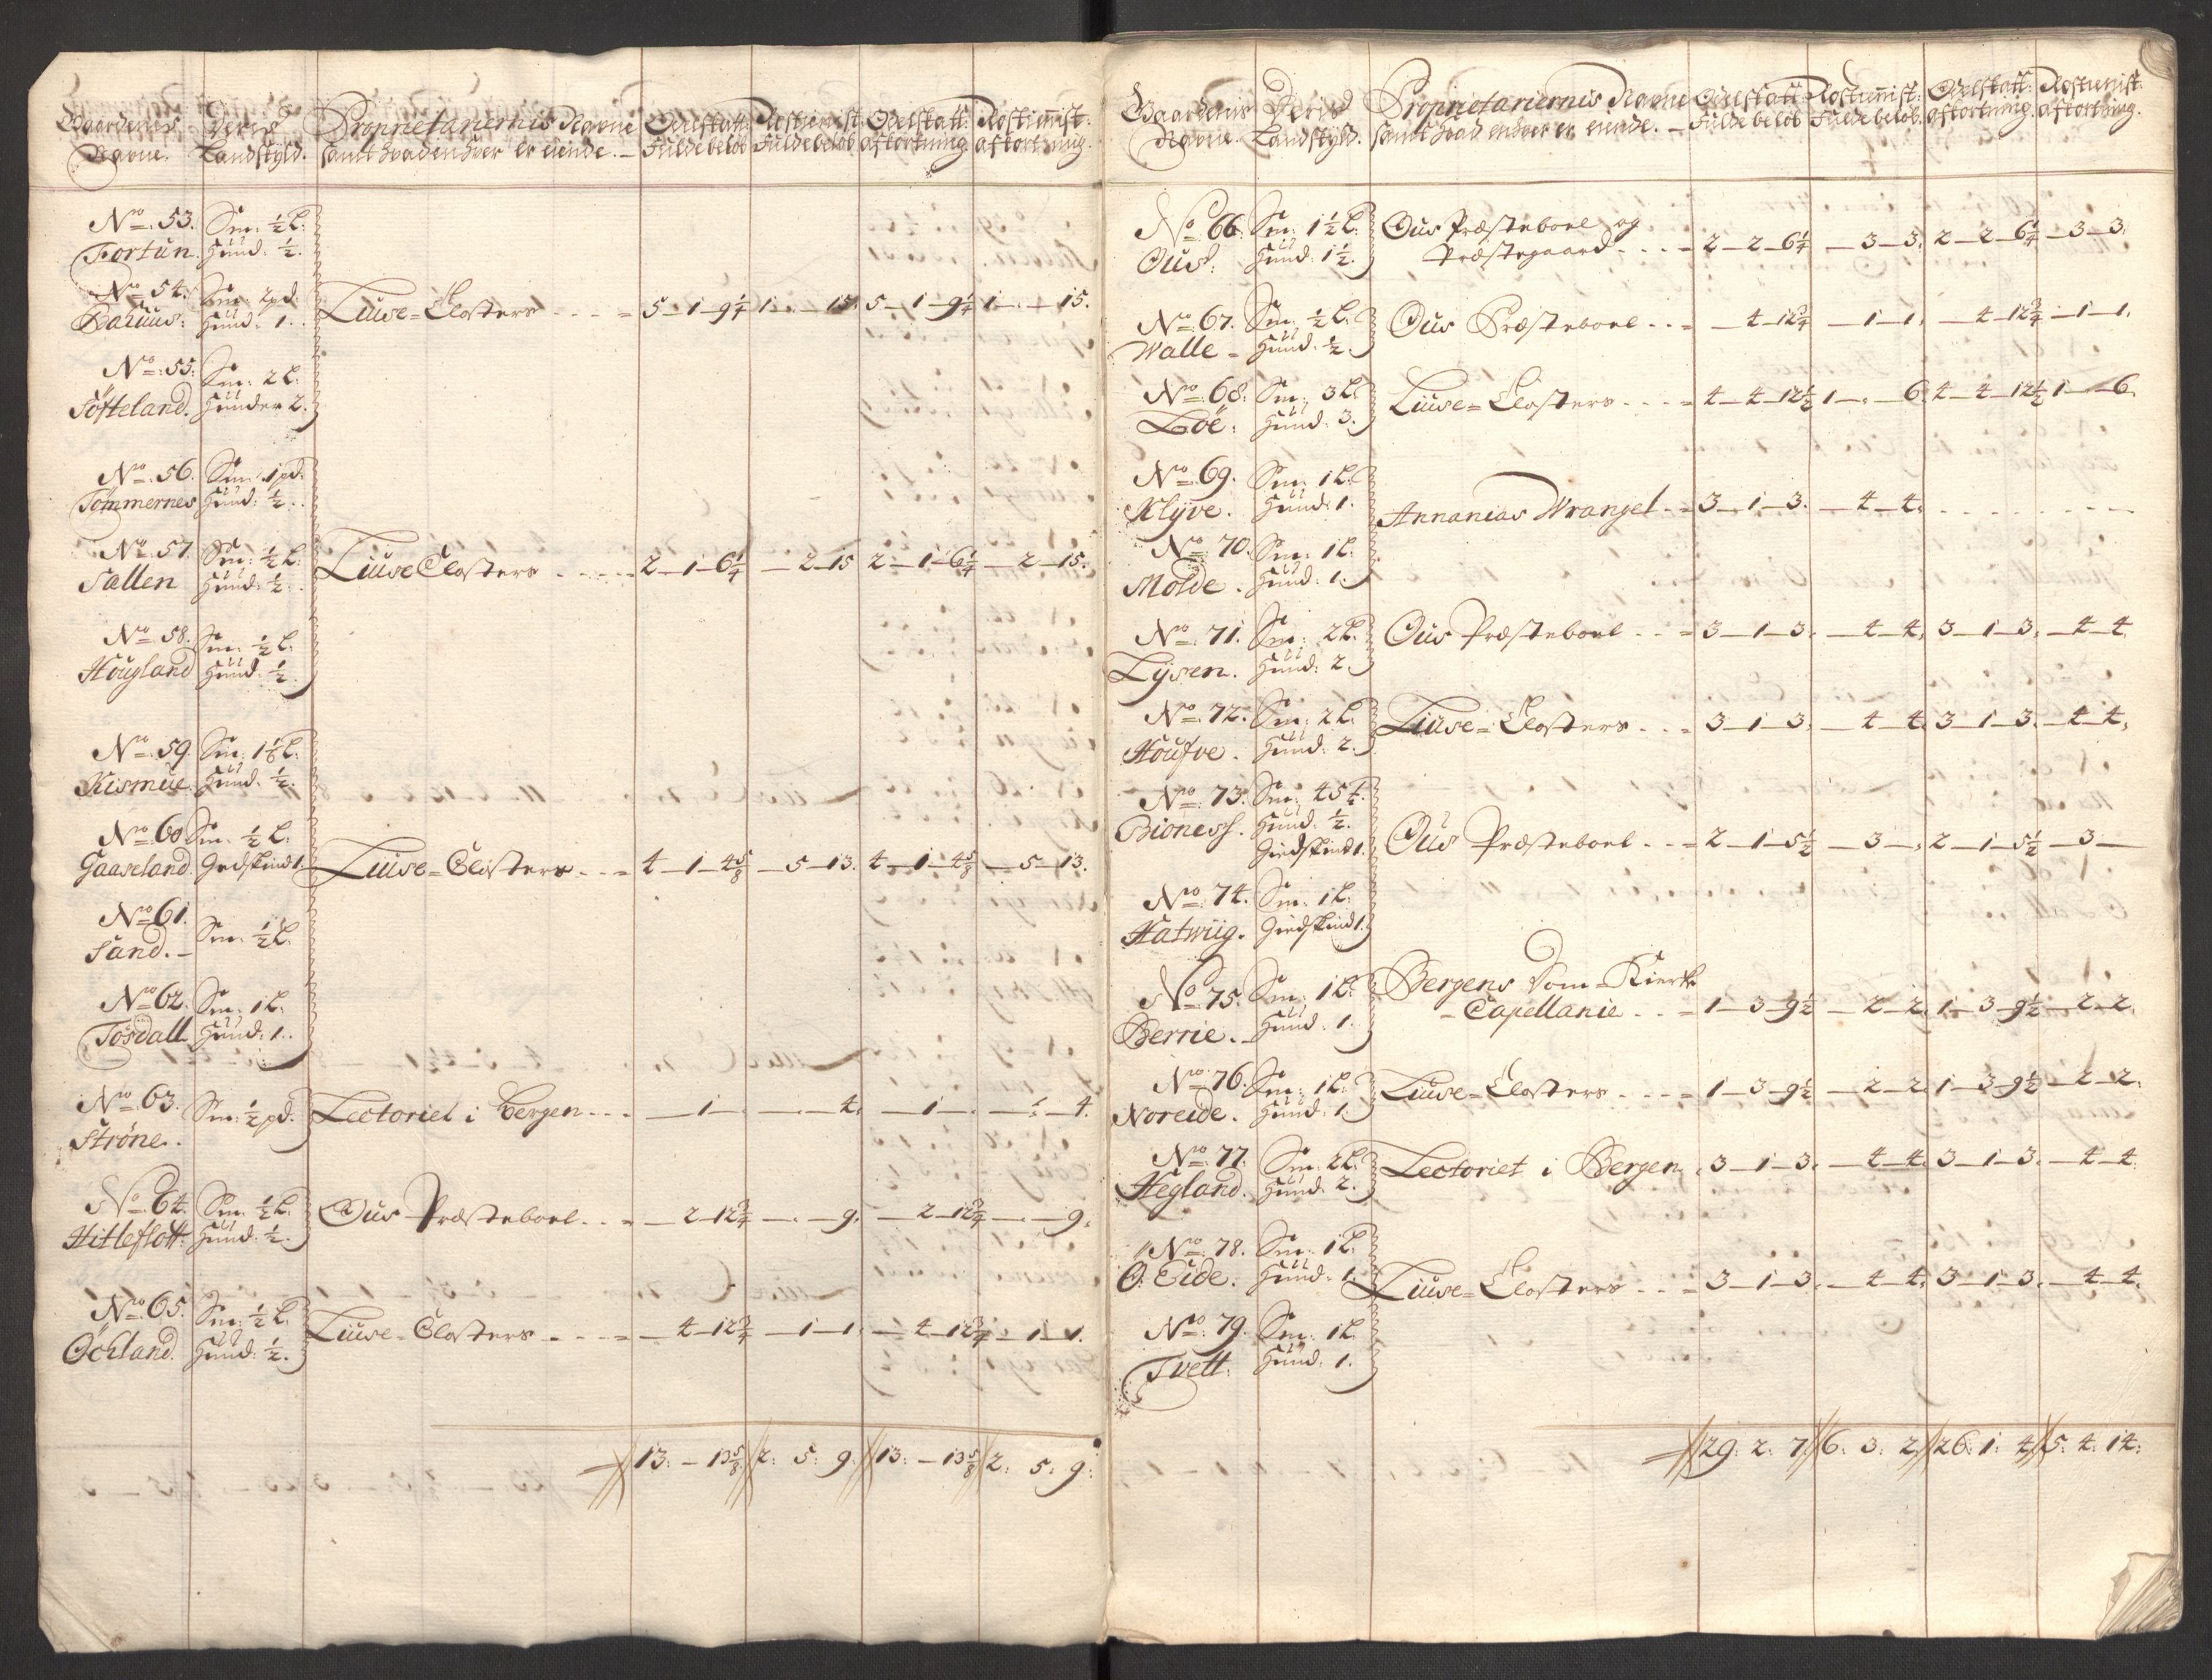 Gaardenes Navne.
Deris Landskyld.
Proprietariernis Navne samt hvad enhver er eiende.
Odelskatt. fulde beløb
Rostienist. fulde beløb
Odelskatt. afkortning.
Rostienist. afkortning.
No. 53. Sm: ½ L:
Fortun. Hund: ½.
No. 54. Sm: 2 pd: Liuse-Closters - - - 5-1-9¼ 1-.-15. 5-1-9¼ 1-.-15.
Hund: 1.
No. 55. Sm: 2 L:
Söfteland. Hunder 2.
No. 56. Sm: 1 pd:
Tömmernes Hund: ½.
No. 57. Sm: ½ L: Liuse Closters - - - 2-1-6¼ -2-15 2-1-6¼ -2-15.
Sallen Hund: ½.
No. 58. Sm: ½ L:
Hougland Hund: ½.
No. 59. Sm: 1⅙ L:
Kismüe. Hund: ½.
No. 60 Sm: ½ L:
Gaaseland. Giedskind 1. Liuse-Closters - - 4-1-4⅝ -5-13. 4-1-4⅝ -5-13.
No. 61.
Sand. - Sm: ½ L:
No. 62. Sm: 1 L:
Tösdall Hund: 1.
No. 63. Sm: ½ pd: Lectoriet i Bergen - - - -1-. -.-4. -1-. -.-4.
Ströne.
No. 64. Sm: ½ L: Ous Præsteboel - - -2-12¾ -.-9. -2-12¾ -.-9.
Hitleflott. Hund: ½.
No. 65. Sm: ½ L: Liuse-Closters - - - -4-12¾ -1-1. -4-12¾ -1-1.
Öchland. Hund: ½.
13: - 13⅝ 2: 5: 9: 13: - 13⅝ 2: 5: 9:
Gaardenis Navne.
Deris Landskyld.
Proprietariernis Navne samt hvad enhver er eiende. -
Odelskatt fulde beløb
Rostienist: fulde beløb.
Odelskatt. afkortning.
Rostienist. afkortning.
No. 66. Sm: 1½ L: Ous Præsteboel og
Ous. Hund: 1½. Præstegaard - - - 2-2-6¼ -3-3. 2-2-6¼ -3-3.
No. 67. Sm: ½ L: Ous Præsteboel - - -4-12¾ -1-1. -4-12¾ -1-1.
Walle - Hund: ½.
No. 68. Sm: 3 L: Liuse-Closters - - - 4-4-12½ 1-.-6. 4-4-12½ 1-.-6.
Löe. Hund: 3.
No. 69. Sm: 1 L:
Klÿve. Hund: 1. Annanias Wrangel - - 3-1-3. -4-4. - - - -
No. 70. Sm: 1 L:
Molde. Hund: 1.
No. 71. Sm: 2 L: Ous Præsteboel - - 3-1-3. -4-4. 3-1-3. -4-4.
Lÿsen. Hund: 2.
No. 72. Sm: 2 L: Liuse-Closters - - 3-1-3. -4-4. 3-1-3. -4-4.
Houfve. Hund: 2.
No. 73. Sm:
Bioness. Hund: ½. Ous Præsteboel - - 2-1-5½ -3-. 2-1-5½ -3-
Giedskind 1.
No. 74. Sm: 1 L:
Hatwiig. Giedskind 1.
No. 75. Sm: 1 L: Bergens Dom-Kierke
Berrie. - Hund: 1. Capellanie - - 1-3-9½ -2-2. 1-3-9½ -2-2.
No. 76. Sm: 1 L: Liuse-Closters - - - 1-3-9½ -2-2. 1-3-9½ -2-2.
Noreide. Hund: 1.
No. 77. Sm: 2 L: Lectoriet i Bergen. 3-1-3. -4-4. 3-1-3. -4-4.
Hegland. Hund: 2.
No. 78. Sm: 1 L:
O. Eide. Hund: 1. Liuse-Closters - - 3-1-3. -4-4. 3-1-3. -4-4.
No. 79. Sm: 1 L:
Tvett. Hund: 1.
29: 2: 7 6: 3: 2 26: 1: 4 5: 4: 14: